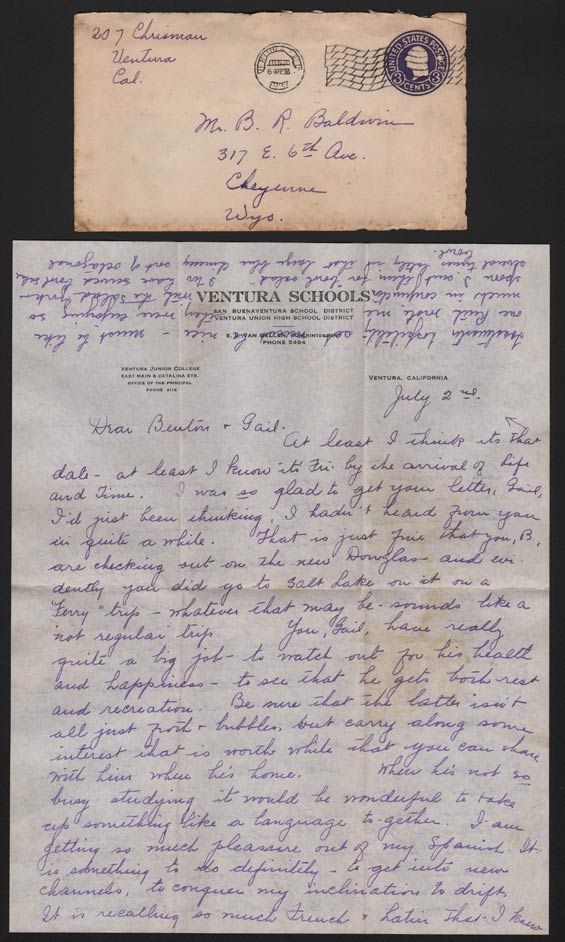 207 Chrisman
Ventura
Cal.
1937
UNITED STATES POSTAGE
3 CENTS 3
Mr. B. R. Baldwin
317 E. 6th Ave.
Cheyenne
Wyo.
VENTURA SCHOOLS
SAN BUENAVENTURA SCHOOL DISTRICT
VENTURA UNION HIGH SCHOOL DISTRICT
PHONE 5464
VENTURA JUNIOR COLLEGE
EAST MAIN & CATALINA STS.
OFFICE OF THE PRINCIPAL
PHONE
VENTURA, CALIFORNIA
July 2nd.
Dear Benton & Gail.
At least I think its that
date - at least I know it's Fri. by the arrival of Life
and Time. I was so glad to get your letter, Gail,
I'd just been thinking, I hadn't heard from you
in quite a while. That is just fine that you, B,
are checking out on the new Douglas and evi-
dently you did go to Salt Lake on it on a
"Ferry" trip - whatever that may be - sounds like a
not regular trip You, Gail, have really
quite a big job - to watch out for his health
and happiness - to see that he gets both rest
and recreation. Be sure that the latter isn't
all just froth & bubbles, but carry along some
interest that is worth while that you can share
with him when he's home. When he's not so
busy studying it would be wonderful to take
up something like a language to-gether. I am
getting so much pleasure out of my Spanish. It
is something to do definitely - to get into new
channels, to conquer my inclination to drift.
It is recalling so much French & Latin that I knew